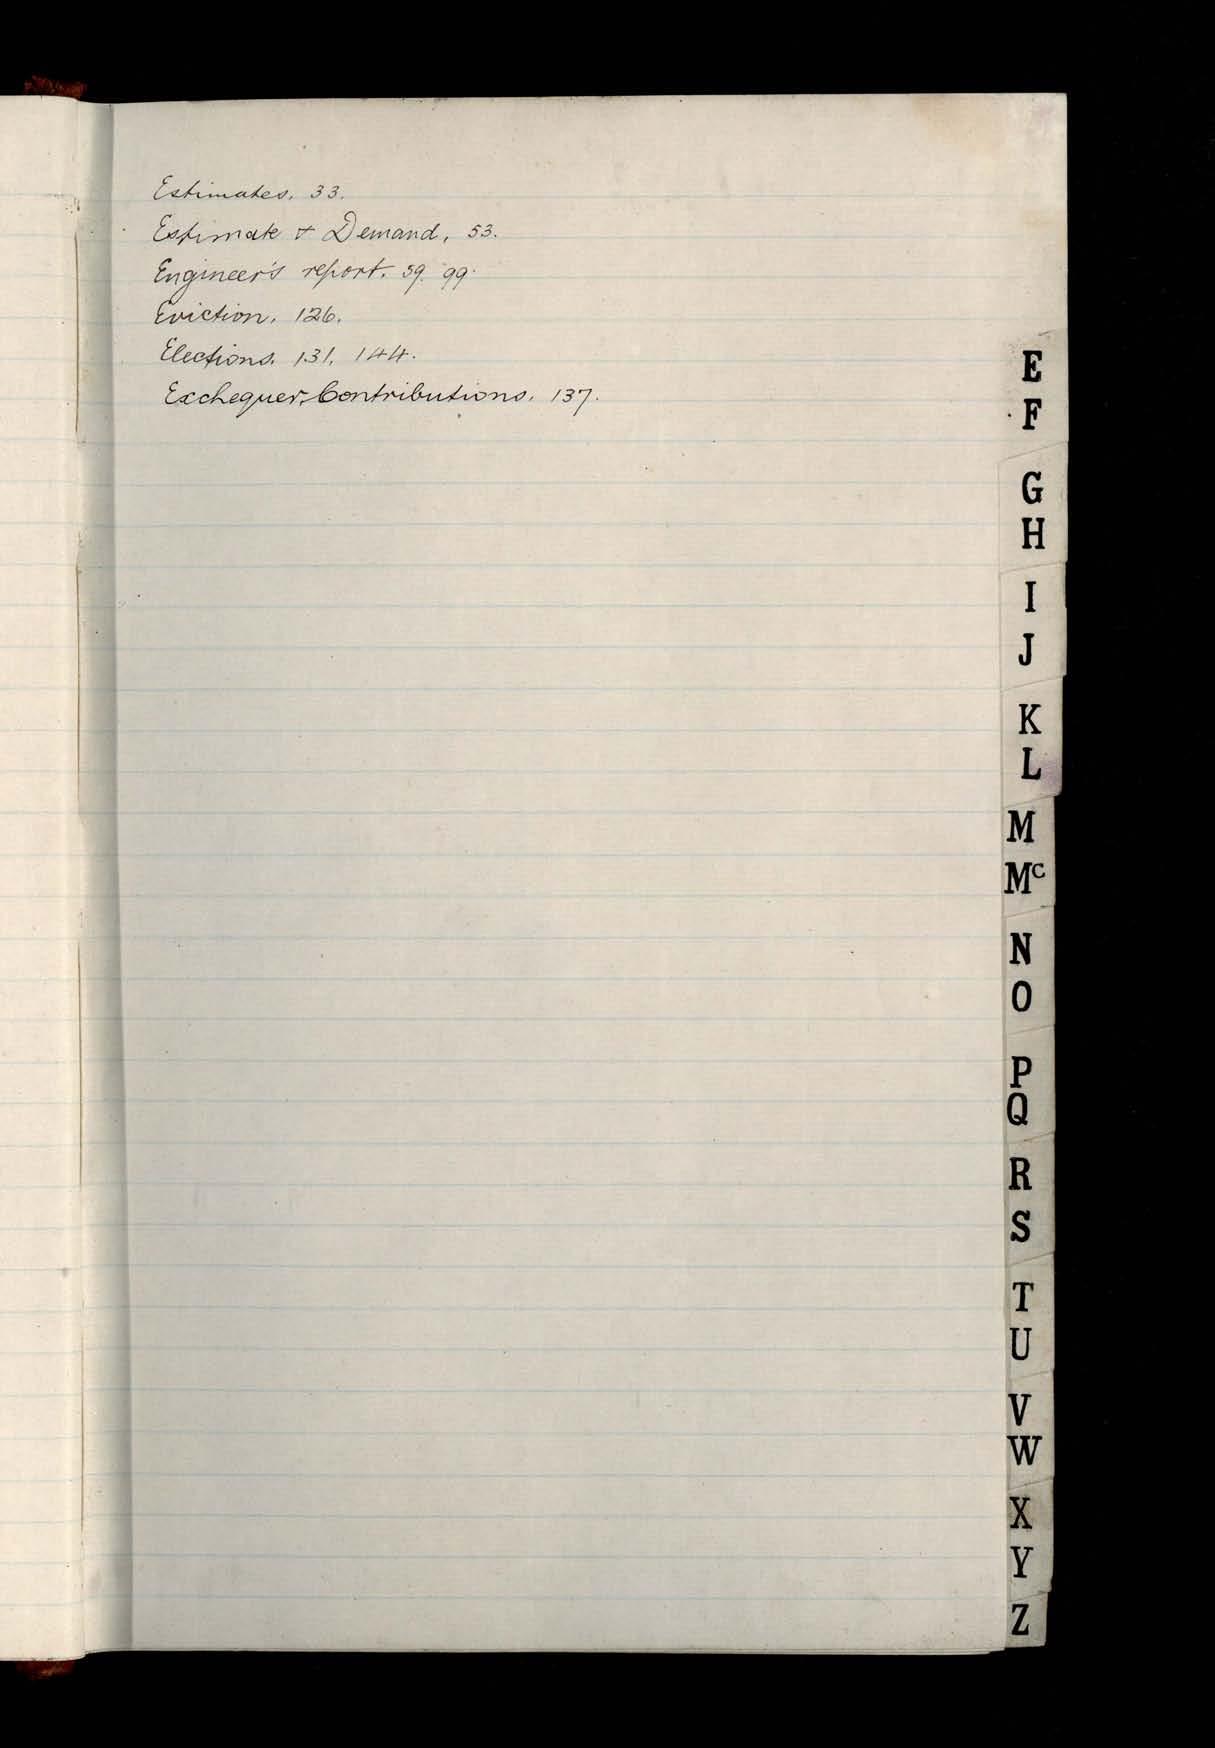 Estimates. 33.
Estimate & Demand, 53.
Engineer's report. 59. 99.
Eviction. 126.
Elections. 131. 144.
Exchequer Contributions. 137.
E
F
G
H
I
J
K
L
M
Mc
N
O
P
Q
R
S
T
U
V
W
X
Y
Z